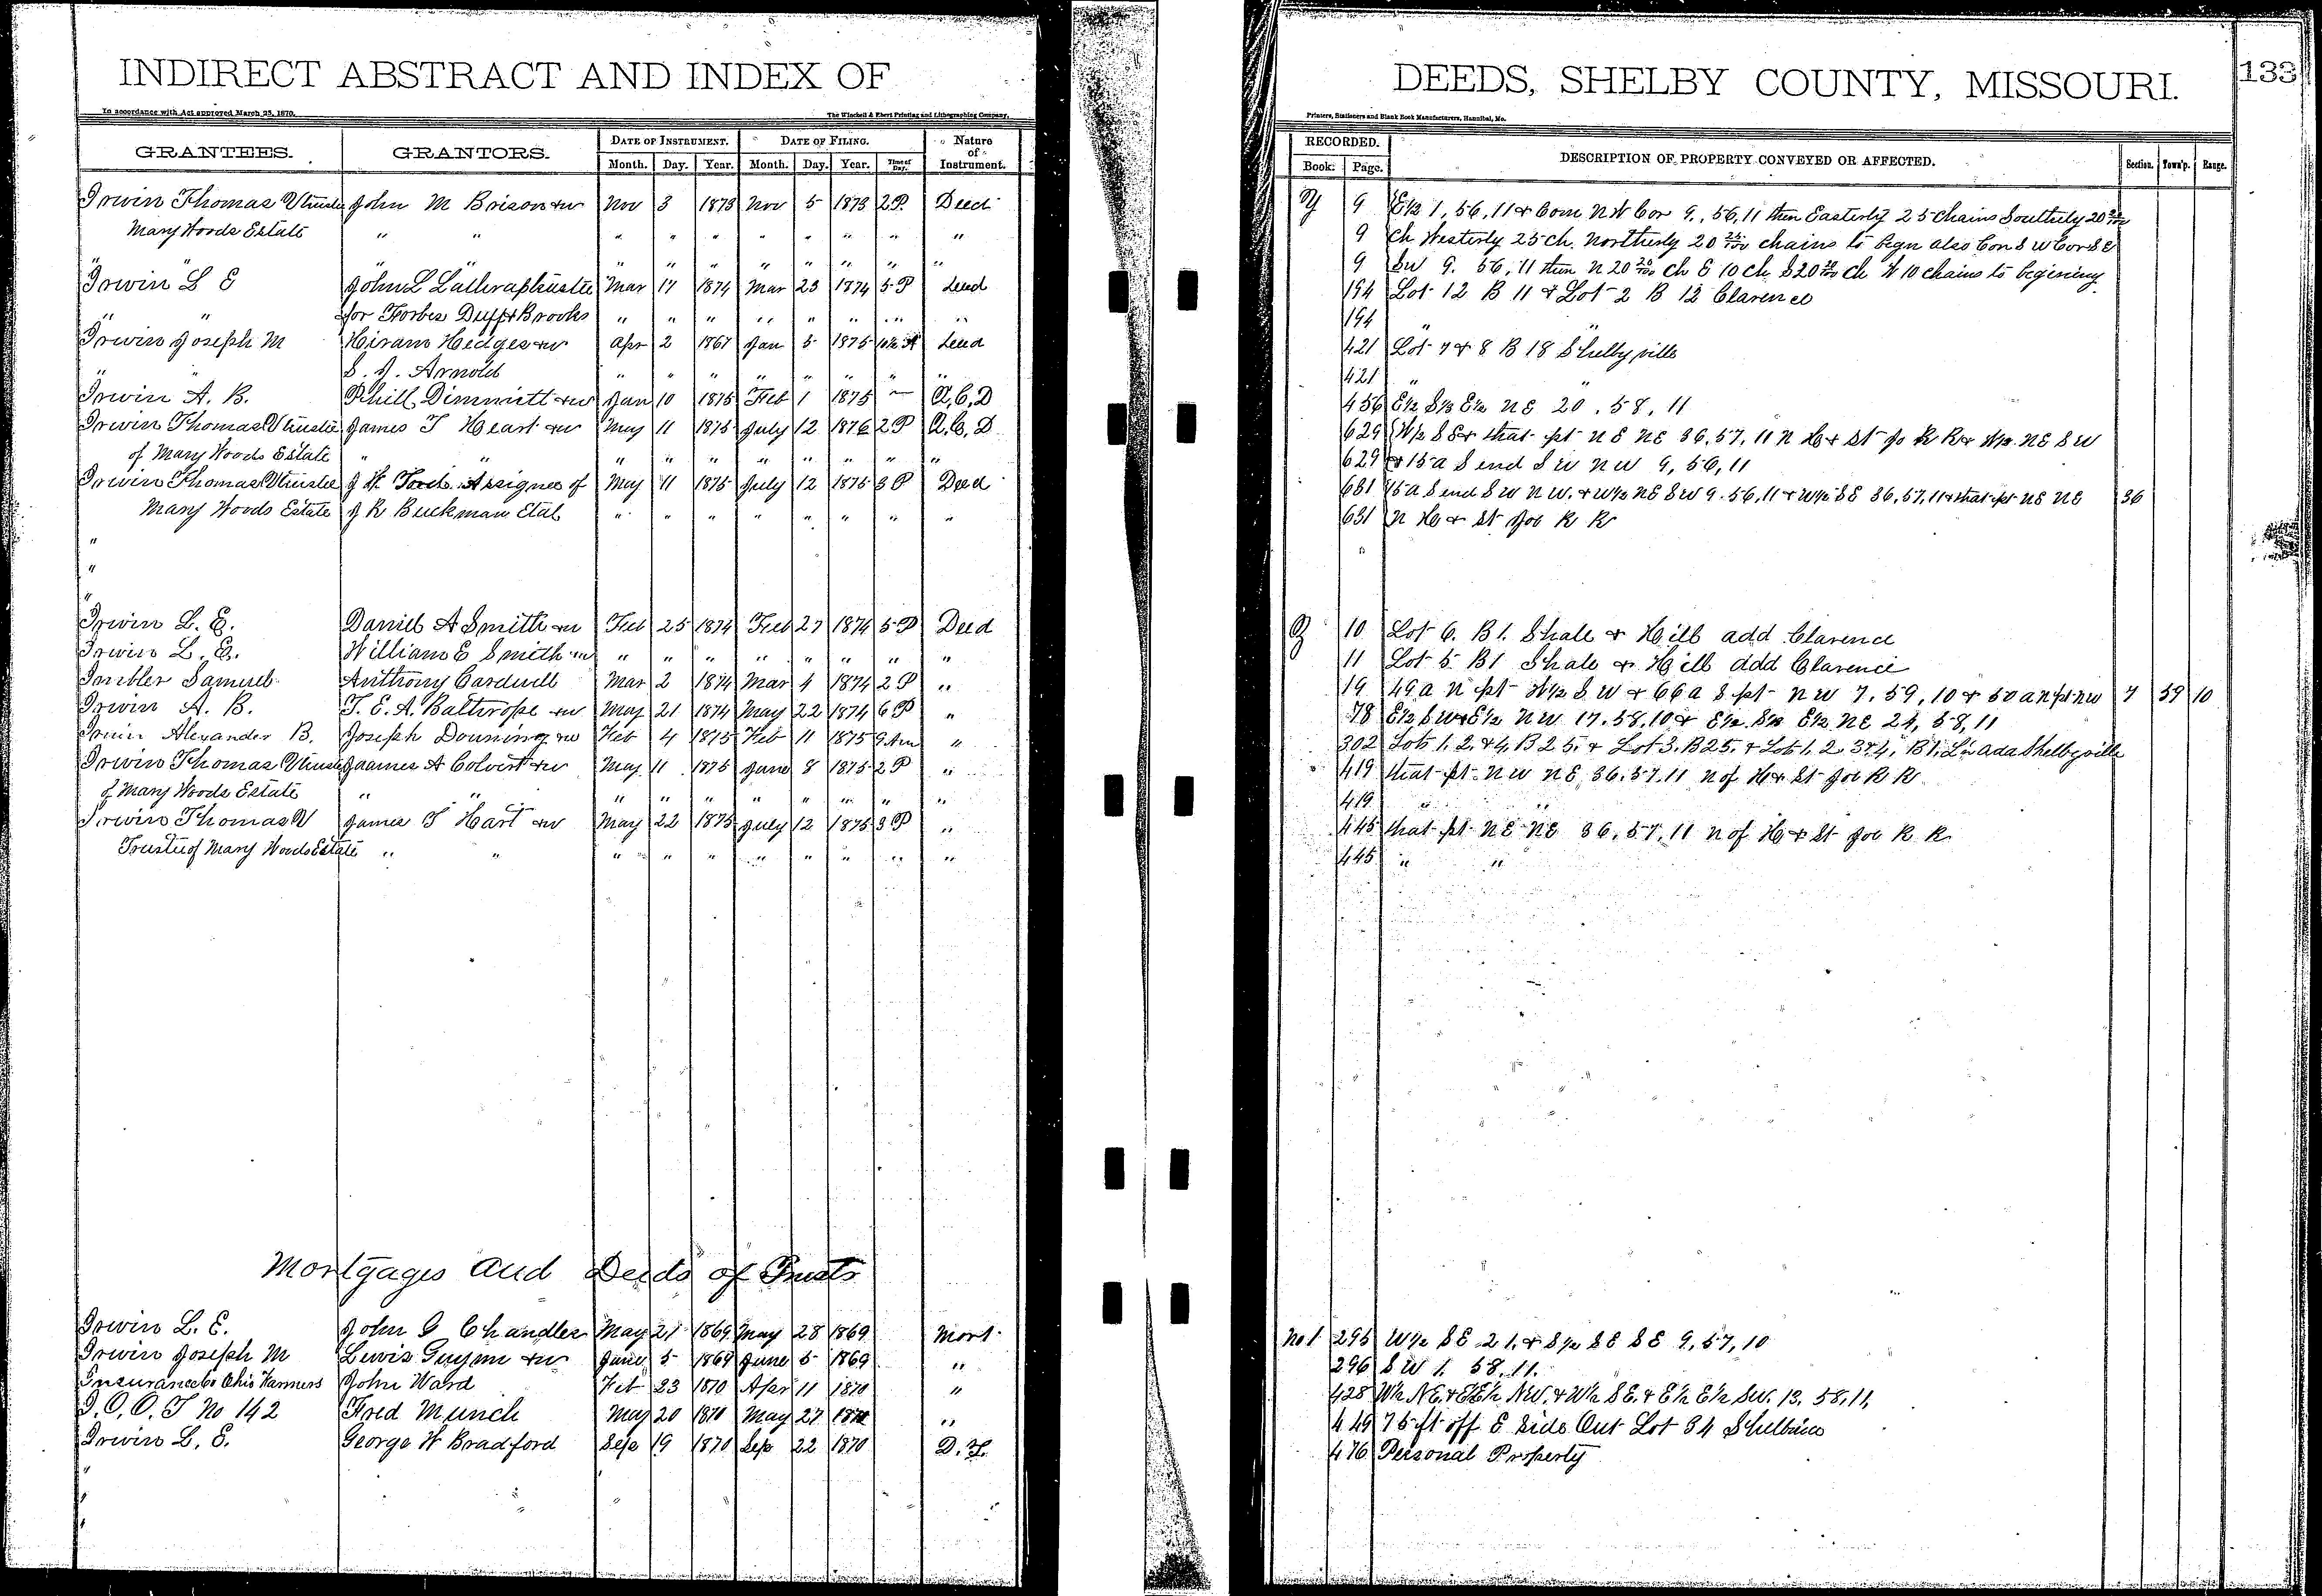 INDIRECT ABSTRACT AND INDEX OF
In accordance with Act approved March 25, 1870.
The Winchell & Ebert Printing and Lithographing Company,
GRANTEES. GRANTORS. DATE OF INSTRUMENT. DATE OF FILING. Nature of Instrument.
Month. Day. Year. Month. Day. Year. Time of Day.
Irwin Thomas V trustee John M Brison & w Nov 3 1873 Nov 5 1873 2 P. Deed
Mary Woods Estate " " " " " " " " " "
" " " " " " " " " "
Irwin L E John L Lathrap trustee Mar 17 1874 Mar 23 1874 5 P Deed
" " for Forbes Duff & Brooks " " " " " " " "
Irwin Joseph M Hiram Hedges & w Apr 2 1867 Jan 5 1875 Deed
" " S. J. Arnold " " " " " " " "
Irwin A. B. Phill Dimmitt & w Jan 10 1875 Feb 1 1875 — Q, C, D
Irwin Thomas V trustee James T Heart & w May 11 1875 July 12 1876 2 P Q. C, D
of Mary Woods Estate " " " " " " " " " "
Irwin Thomas V trustee J W Assignee of May 11 1875 July 12 1875 3 P Deed
Mary Woods Estate J R Buckman Etal " " " " " " " "
"
"
"
Irwin L. E. Daniel A Smith & w Feb 25 1874 Feb 27 1874 5 P Deed
Irwin L. E. William E Smith & w " " " " " " " "
Imbler Samuel Anthony Cardwell Mar 2 1874 Mar 4 1874 2 P "
Irwin A. B. T. E. A. Balthrope & w May 21 1874 May 22 1874 6 P "
Irwin Alexander B. Joseph Downing & w Feb 4 1875 Feb 11 1875 9 Am "
Irwin Thomas V trustee James A Colvert & w May 11 1875 June 8 1875 2 P "
of Mary Woods Estate " " " " " " " " " "
Irwin Thomas V James T Hart & w May 22 1875 July 12 1875 3 P "
Trustee of Mary Woods Estate " " " " " " " " " "
Mortgages and Deeds of Trusts
Irwin L. E. John G Chandler May 21 1869 May 28 1869 Mort.
Irwin Joseph M Lewis Guynn & w June 5 1869 June 5 1869 "
Insurance Co Ohio Farmers John Ward Feb 23 1870 Apr 11 1870 "
I. O. O. F No 142 Fred Munch May 20 1870 May 27 1870 "
Irwin L. E. George W Bradford Sep 19 1870 Sep 22 1870 D. T.
"
"
"
DEEDS, SHELBY COUNTY, MISSOURI.
133
Printers, Stationers and Blank Book Manufacturers, Hannibal, Mo.
RECORDED. DESCRIPTION OF PROPERTY CONVEYED OR AFFECTED. Section. Town'p. Range.
Book. Page.
Y 9 E½ 1, 56, 11 & Com N W Cor 9., 56, 11 then Easterly 25 chains Southerly 20 25/100
9 Ch Westerly 25 ch. Northerly 20 25/100 chains to begn also Con S W Cor S E
9 S W 9. 56, 11 then N 20 20/100 ch E 10 ch S 20 20/100 ch W 10 chains to begining
194 Lot 12 B 11 & Lot 2 B 12 Clarence
194 " "
421 Lot 7 & 8 B 18 Shelbyville
421 " "
456 E½ S½ E½ N E 20, 58, 11
629 W½ S E & that pt N E NE 36, 57, 11 N H & St Jo R R & W½ NE S W
629 & 15 a S end S W N W 9, 56, 11
631 15 a S end S W N W. & W½ NE S W 9. 56, 11 & W½ S E 36, 57, 11 & that pt NE NE 36
631 N H & St Joe R R
Z 10 Lot 6. B 1. Shale & Hill add Clarence
11 Lot 5 B 1 Shale & Hill add Clarence
19 49 a N pt W½ S W & 66 a S pt N W 7, 59, 10 & 50 a N pt NW 7 59 10
78 E½ S W & E½ N W 17, 58, 10 & E½ S½ E½ NE 24, 58, 11
302 Lots 1, 2, & 4, B 25, & Lot 3, B 25, & Lots 1, 2, 3 & 4, B 1, Shelbyville
419 that pt N W NE, 36, 57, 11 N of H & St Joe R R
419 " "
445 that pt NE NE 36, 57, 11 N of H & St Joe R R
445 " "
No 1 295 W½ S E 21, & S½ S E S E 9, 57, 10
296 S W 1. 58. 11.
428 W½ NE & E½ NW. & W½ S E. & E½ E½ SW. 13, 58, 11,
449 75 ft off E side Out Lot 34 Shelbina
476 Personal Property